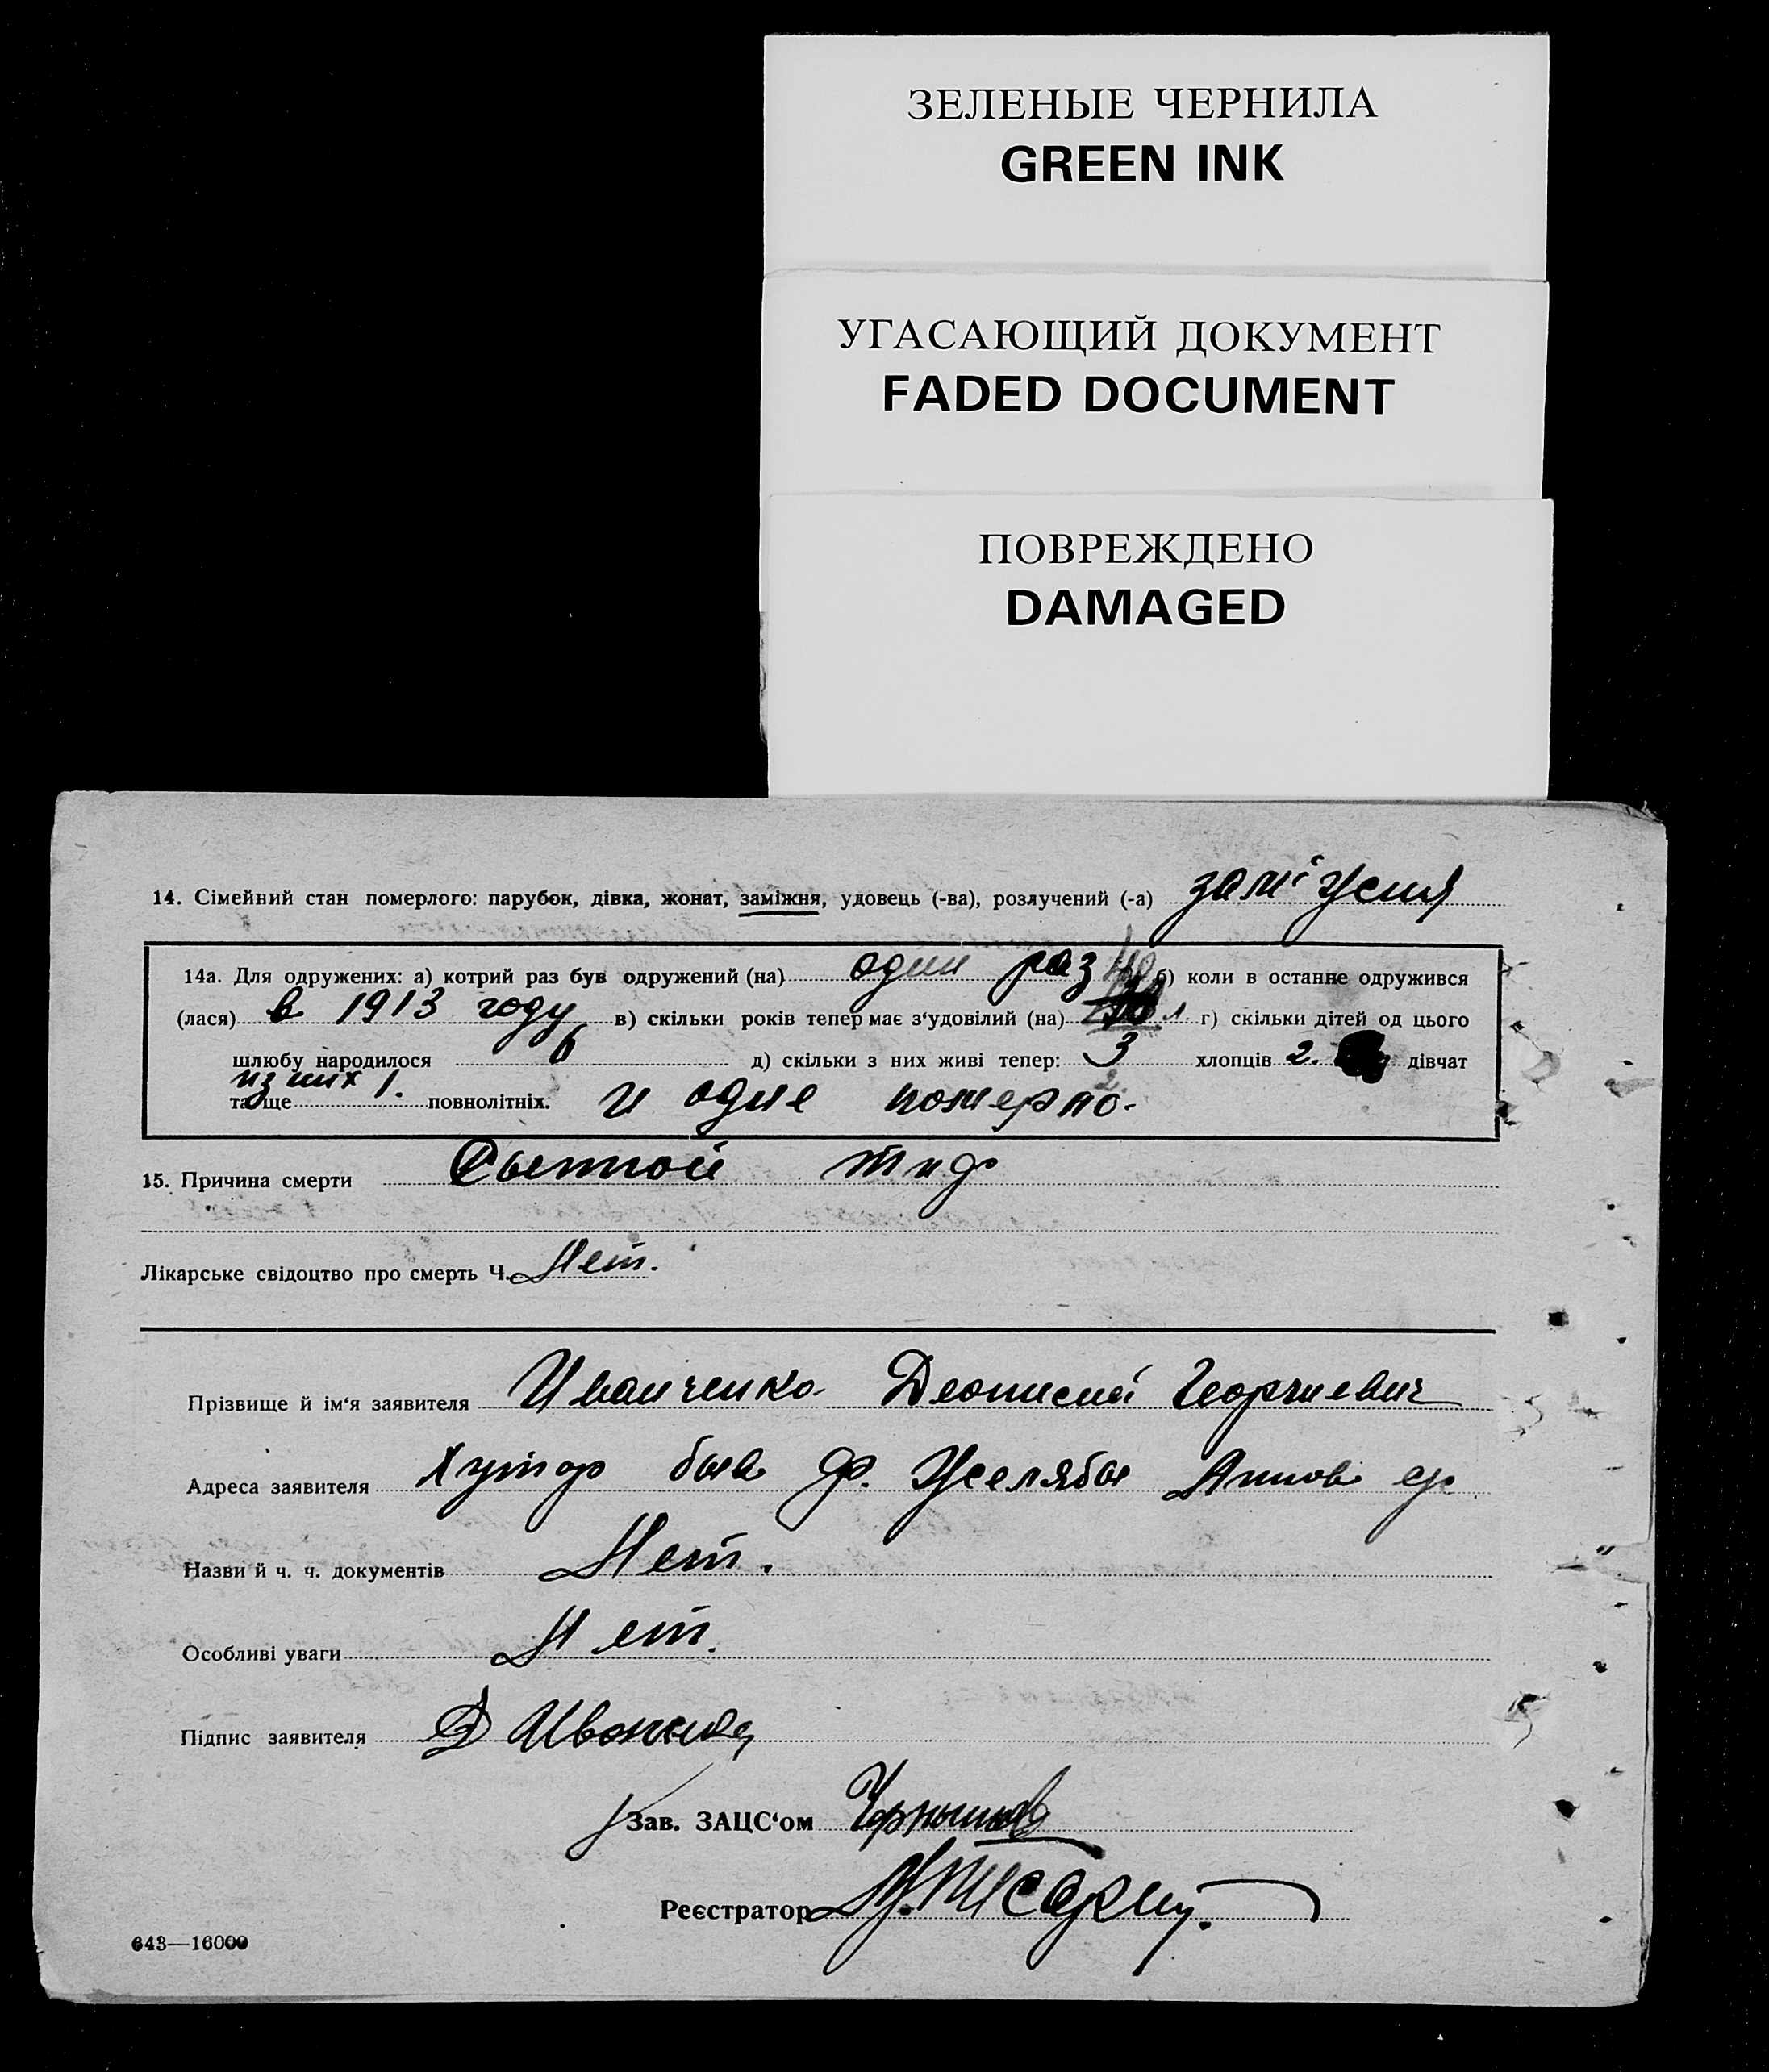 ЗЕЛЕНЫЕ ЧЕРНИЛА
GREEN INK
УГАСАЮЩИЙ ДОКУМЕНТ
FADED DOCUMENT
ПОВРЕЖДЕНО
DAMAGED
14. Сімейний стан померлого: парубок, дівка, жонат, заміжня, удовець (-ва), розлучений (-а) заміжня
14а. Для одружених: а) котрий раз був одружений (на) один раз б) коли в останнє одружився
(лася) в 1913 году в) скільки років тепер має з'удовілий (на) 40 л г) скільки дітей од цього
шлюбу народилося 6 д) скільки з них живі тепер: 3 хлопців 2. дівчат
та ще из них 1. повнолітніх. и одне померло.
15. Причина смерти Сыпной тиф
Лікарське свідоцтво про смерть Ч. Нет.
Прізвище й ім'я заявителя Иванченко Деонисий Георгиевич
Адреса заявителя Хутор быв
Назви й ч. ч. документів Нет.
Особливі уваги Нет.
Підпис заявителя Д
Зав. ЗАЦС'ом
Реєстратор
643—16000